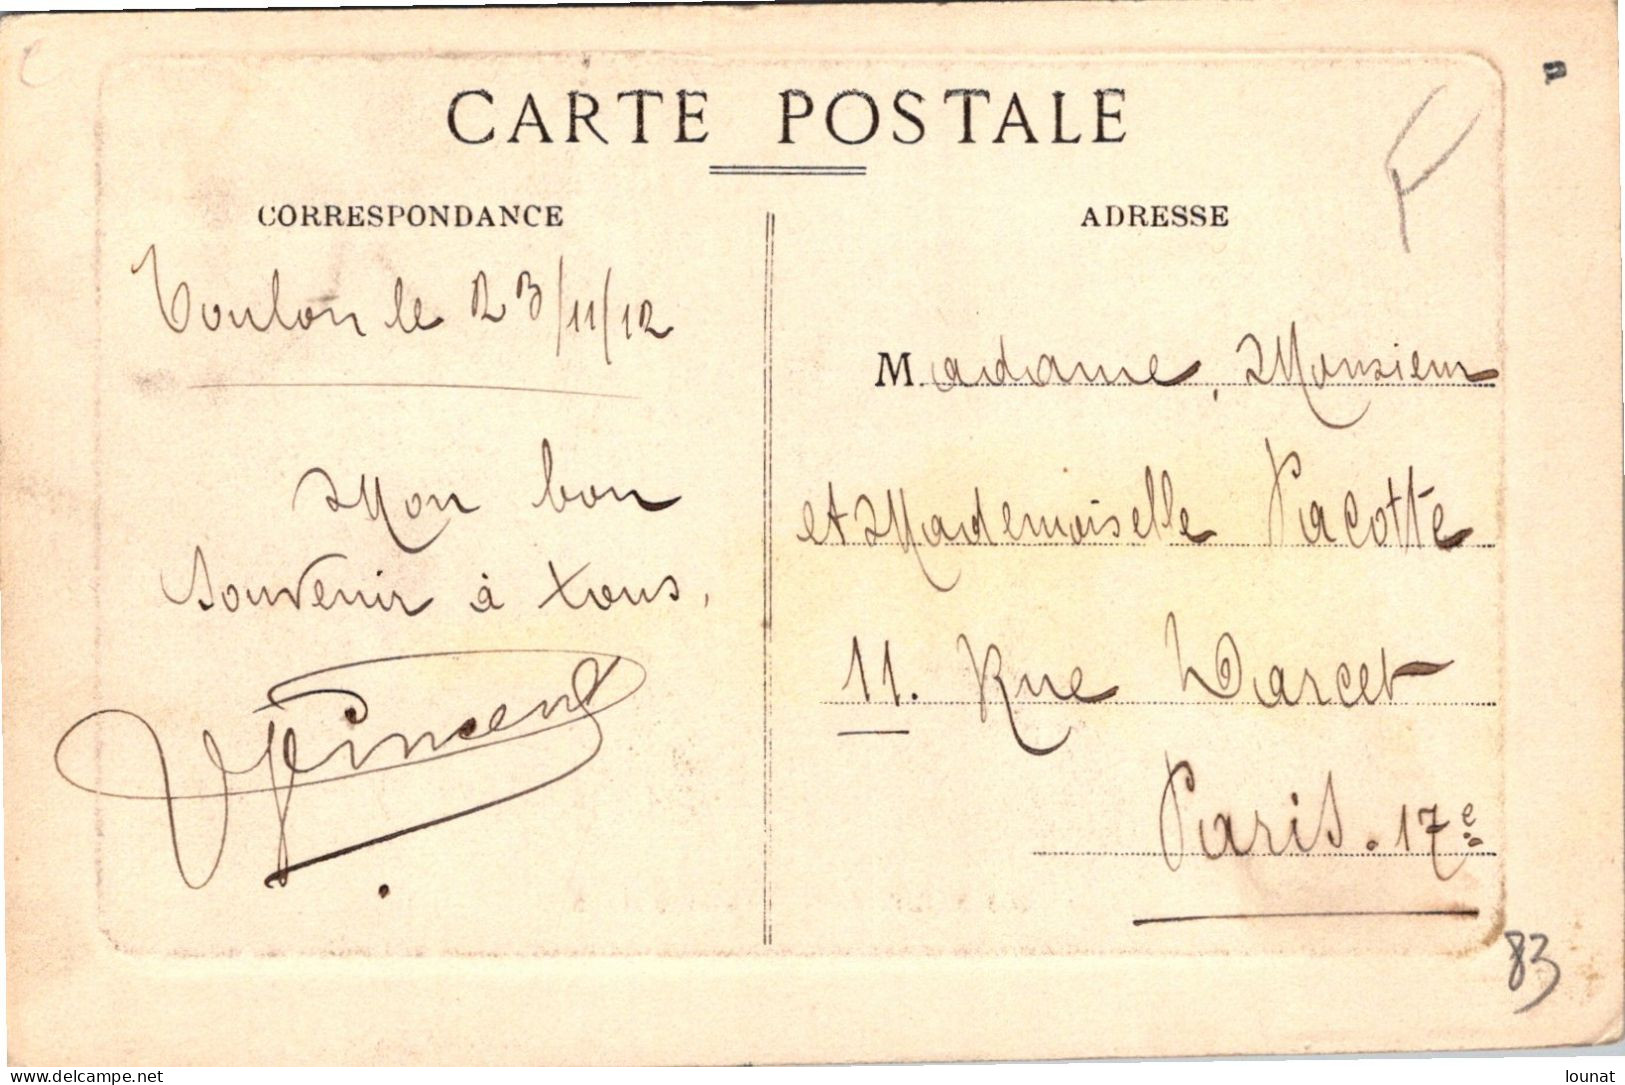 CARTE POSTALE
CORRESPONDANCE
Toulon le 23/11/12
Mon bon
souvenir à tous,
Vincent
ADRESSE
Madame, Monsieur
et Mademoiselle Pacotte
11. Rue Darcet
Paris. 17e
83
www.delcampe.net
lounat